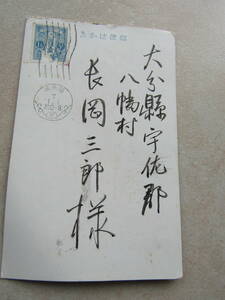 郵便はかき
大分縣宇佐郡
八幡村
長岡三郎様